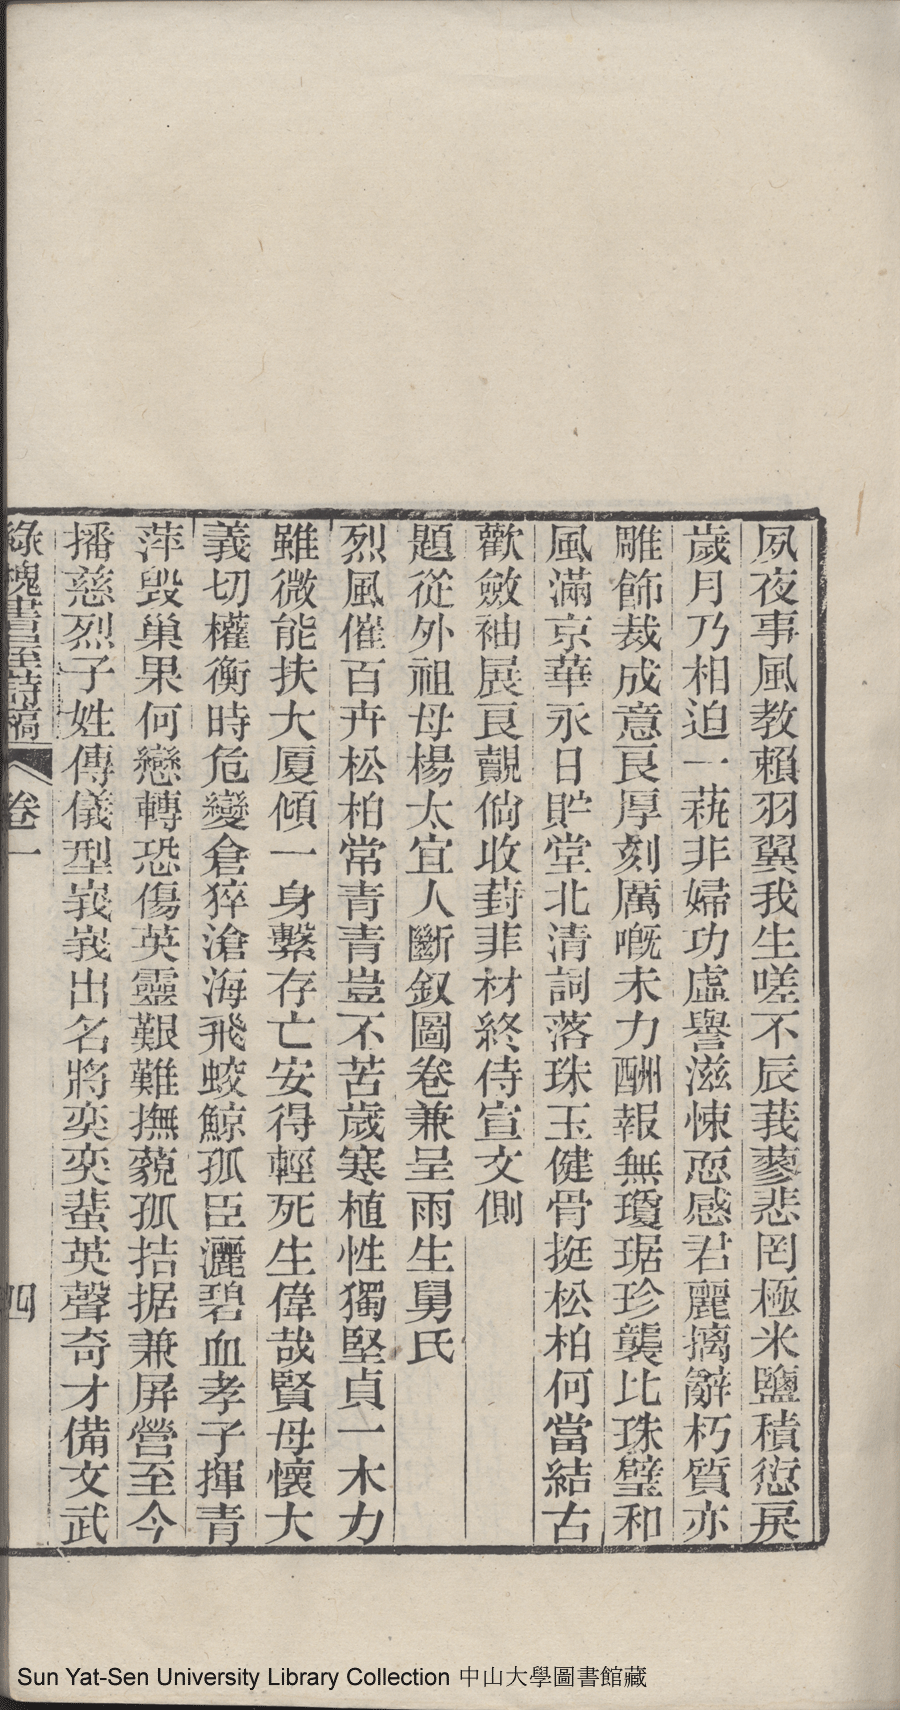 夙夜事風教賴羽翼我生嗟不辰莪蓼悲罔極米鹽積愆戾
歲月乃相迫一蓺非婦功虛譽滋悚恧感君麗摛辭朽質亦
雕飾裁成意良厚刻厲嘅未力酬報無瓊琚珍襲比珠璧和
風滿京華永日貯堂北清詞落珠玉健骨挺松柏何當結古
歡斂袖展良覿倘收葑菲材終侍宣文側
題從外祖母楊太宜人斷釵圖卷兼呈雨生舅氏
烈風催百卉松柏常青青豈不苦歲寒植性獨堅貞一木力
雖微能扶大厦傾一身繫存亡安得輕死生偉哉賢母懷大
義切權衡時危變倉猝滄海飛蛟鯨孤臣灑碧血孝子揮青
萍毀巢果何戀轉恐傷英靈艱難撫藐孤拮据兼屏營至今
播慈烈子姓傳儀型峩峩出名將奕奕蜚英聲奇才備文武
綠槐書屋詩稿 卷一 四
Sun Yat-Sen University Library Collection 中山大學圖書館藏